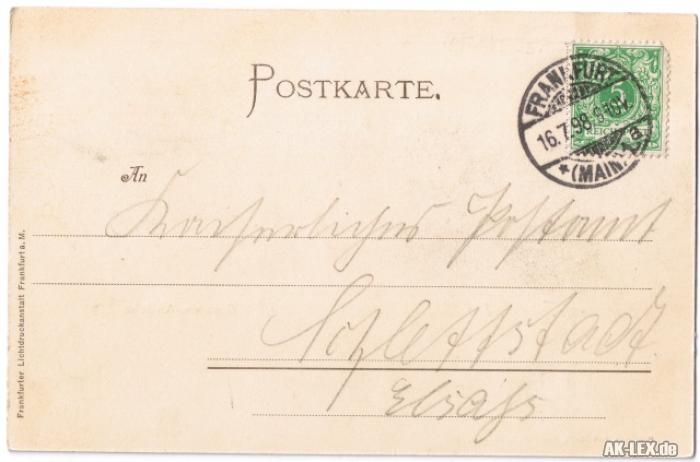 POSTKARTE.
FRANKFURT
16.7.98.9-10V.
* (MAIN) 1 a
5
REICHSPOST
An
Kaiserliches Postamt
Schlettstadt.
Elsaß
Frankfurter Lichtdruckanstalt Frankfurt a. M.
AK-LEX.de